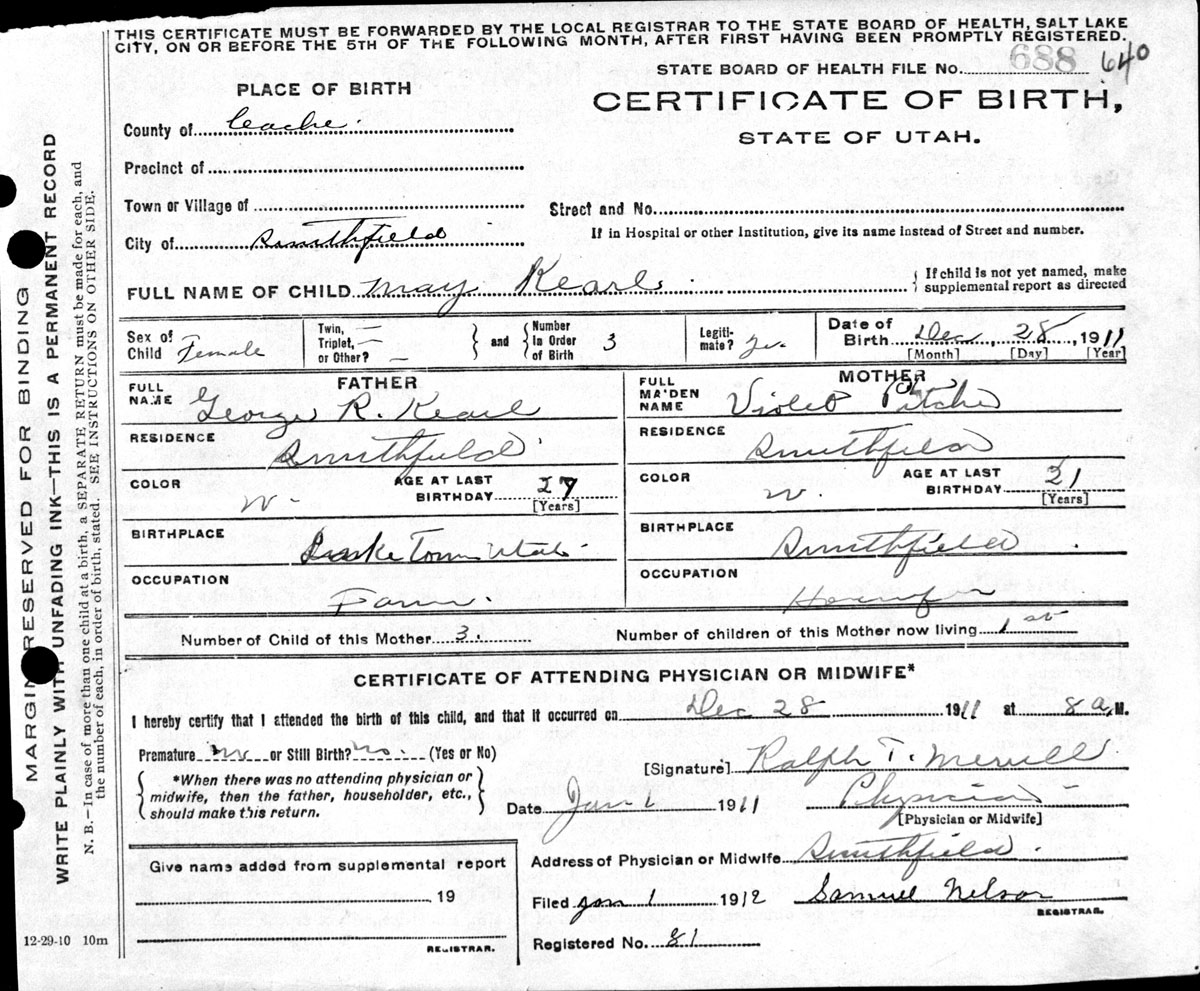 THIS CERTIFICATE MUST BE FORWARDED BY THE LOCAL REGISTRAR TO THE STATE BOARD OF HEALTH, SALT LAKE
CITY, ON OR BEFORE THE 5TH OF THE FOLLOWING MONTH, AFTER FIRST HAVING BEEN PROMPTLY REGISTERED.
STATE BOARD OF HEALTH FILE No. 688 640
PLACE OF BIRTH
CERTIFICATE OF BIRTH,
STATE OF UTAH.
County of Ceache.
Precinct of
Town or Village of
Street and No.
City of Smithfield
If in Hospital or other Institution, give its name instead of Street and number.
FULL NAME OF CHILD May Kearl
If child is not yet named, make
supplemental report as directed
Sex of Child Female
Twin, —
Triplet, —
or Other? —
and
Number in Order of Birth 3
Legiti-mate? Yes.
Date of Birth Dec, 28, 1911
[Month] [Day] [Year]
FATHER
FULL NAME George R. Kearl
RESIDENCE Smithfield
COLOR W. AGE AT LAST BIRTHDAY 27
[Years]
BIRTHPLACE Laketown Utah
OCCUPATION Farmer.
MOTHER
FULL MA'DEN NAME Violet Pitcher
RESIDENCE Smithfield
COLOR W. AGE AT LAST BIRTHDAY 21
[Years]
BIRTHPLACE Smithfield
OCCUPATION
Number of Child of this Mother 3.
Number of children of this Mother now living 1
CERTIFICATE OF ATTENDING PHYSICIAN OR MIDWIFE*
I hereby certify that I attended the birth of this child, and that it occurred on Dec 28 1911 at 8 a. M.
Premature No or Still Birth? No. (Yes or No)
*When there was no attending physician or
midwife, then the father, householder, etc.,
should make this return.
[Signature] Ralph T. Merrill
Date Jan 1 1911 Physician
[Physician or Midwife]
Give name added from supplemental report
19
REGISTRAR.
Address of Physician or Midwife Smithfield.
Filed Jan 1 1912 Samuel Nelson
REGISTRAR.
Registered No. 81
12-29-10 10m
MARGIN RESERVED FOR BINDING
WRITE PLAINLY WITH UNFADING INK—THIS IS A PERMANENT RECORD
N. B.—In case of more than one child at a birth, a SEPARATE RETURN must be made for each, and
the number of each, in order of birth, stated. SEE INSTRUCTIONS ON OTHER SIDE.